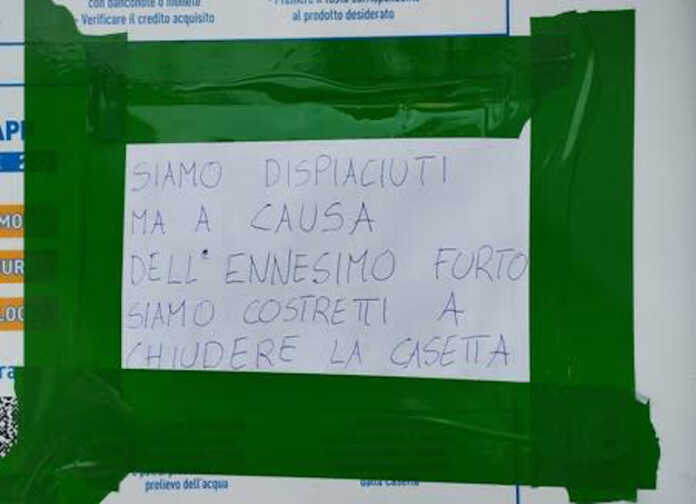 con banconote o monete
- Verificare il credito acquisito
al prodotto desiderato
SIAMO DISPIACIUTI
MA A CAUSA
DELL'ENNESIMO FURTO
SIAMO COSTRETTI A
CHIUDERE LA CASETTA
prelievo dell'acqua
dalla Casetta